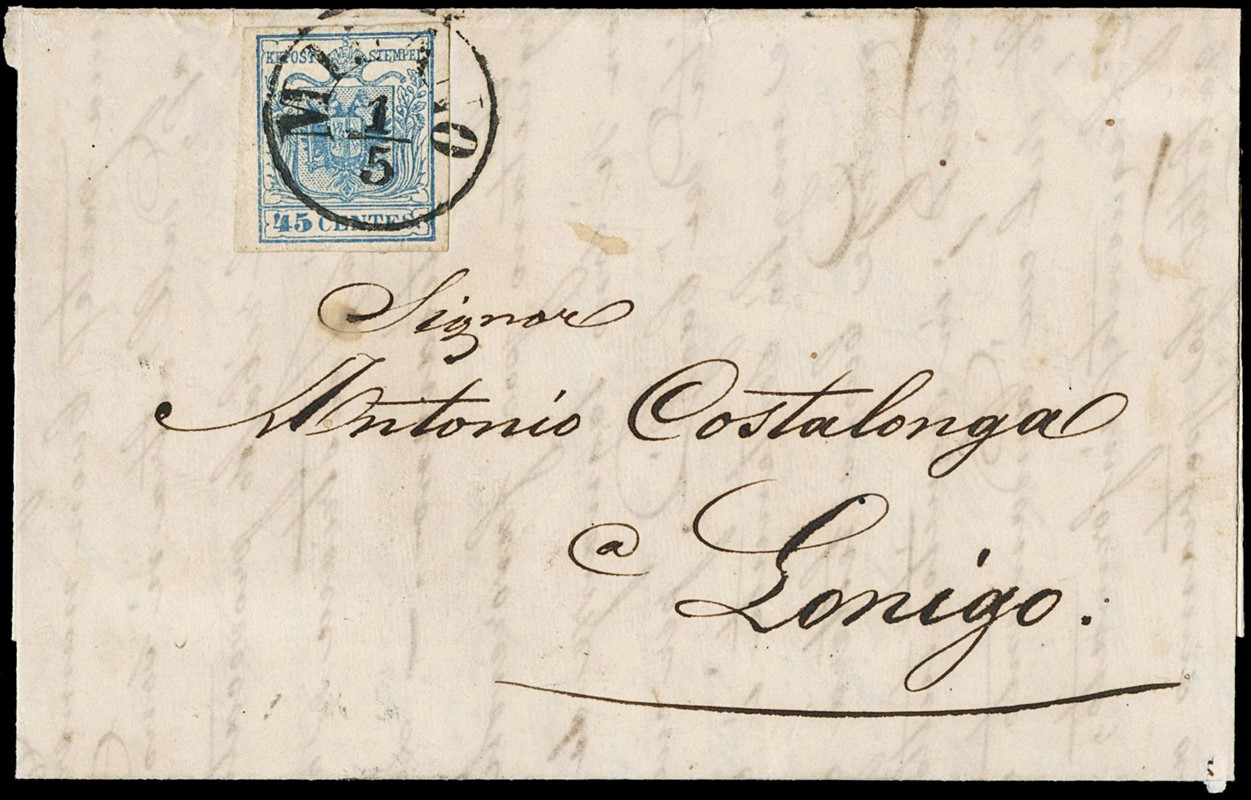 KK POST STEMPEL
MILANO
1
5
45 CENTES
Signor
Antonio Costalonga
a Lonigo.